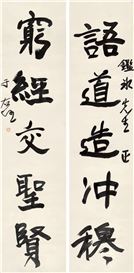 語道造沖穆
鑑冰先生正
窮經交聖賢
于右任